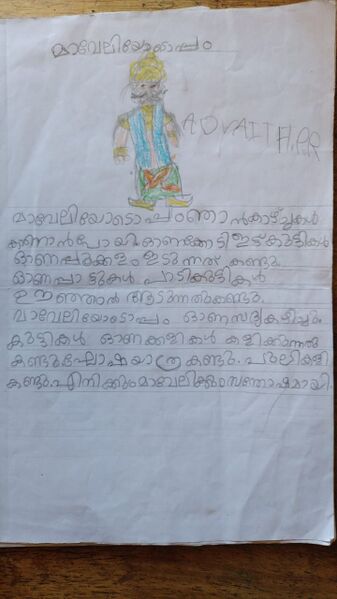 മാവേലിയോടൊപ്പം
ADVAITH.P.R
മാവേലിയോടൊപ്പംഞാൻകാഴ്ച്ചകൾ
കാണാൻപോയി.ഓണക്കോടിഇട്ട്കുട്ടികൾ
ഓണപ്പൂക്കളംഇടുന്നത് കണ്ടു.
ഓണപ്പാട്ടുകൾ പാടികുട്ടികൾ
ഊഞ്ഞാൽ ആടുന്നതുകണ്ടു.
മാവേലിയോടൊപ്പം ഓണസദ്യകഴിച്ചു.
കുട്ടികൾ ഓണക്കളികൾ കളിക്കുന്നത്
കണ്ടു.ഘോഷയാത്ര കണ്ടു. പുലികളി
കണ്ടു.എനിക്കുംമാവേലിക്കുംസന്തോഷമായി.